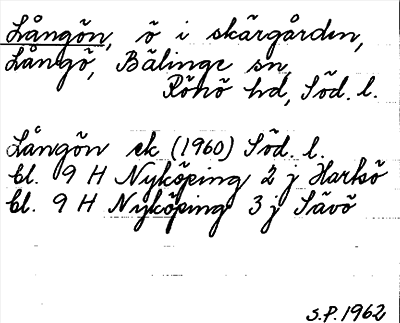 Långön, ö i skärgården,
Långö, Bälinge sn,
Rönö hd, Söd. l.
Långön ek (1960) Söd. l.
bl. 9 H Nyköping 2 j Harksö
bl. 9 H Nyköping 3 j Sävö
S.P. 1962